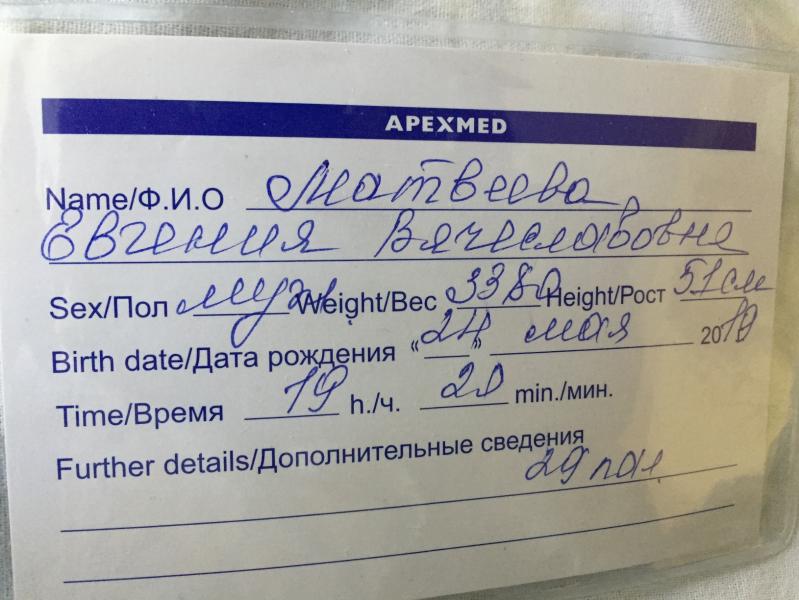 APEXMED
Name/Ф.И.О Матвеева
Евгения Вячеславовна
Sex/Пол муж. Weight/Вес 3380 Height/Рост 51 см
Birth date/Дата рождения « 24 » мая 2019
Time/Время 19 h./ч. 20 min./мин.
Further details/Дополнительные сведения
29 пал